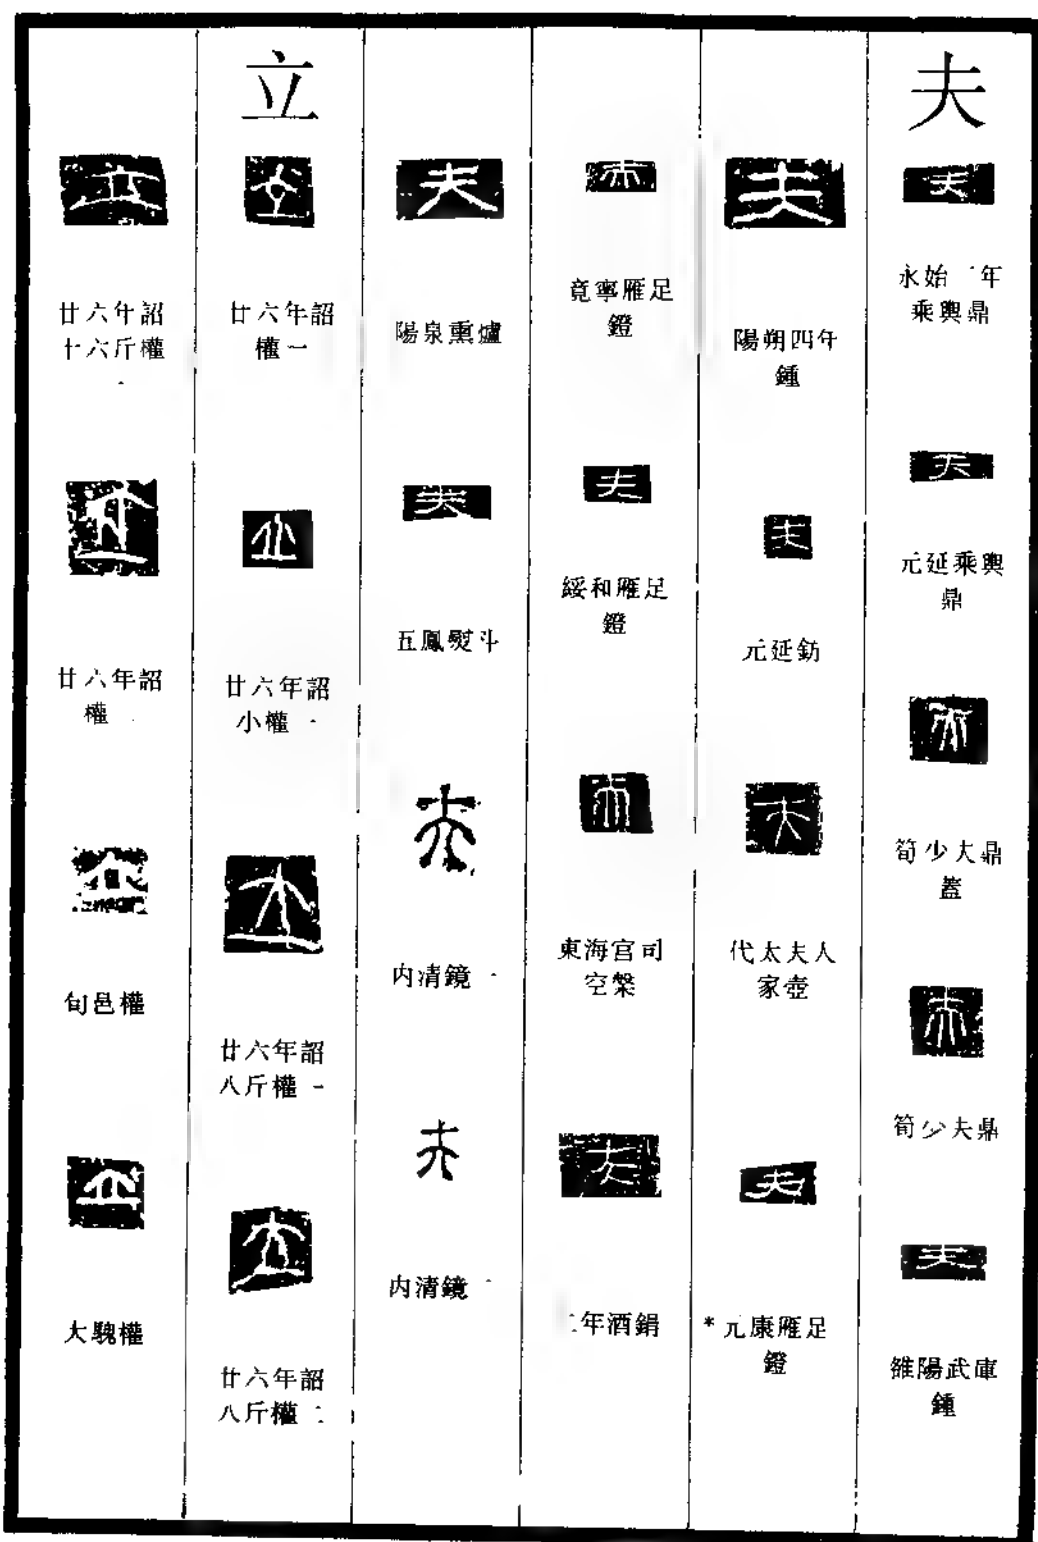 夫
永始二年
乘輿鼎
元延乘輿
鼎
筍少夫鼎
蓋
筍少夫鼎
雒陽武庫
鍾
陽朔四年
鍾
元延鈁
代太夫人
家壺
*元康雁足
鐙
竟寧雁足
鐙
綏和雁足
鐙
東海宮司
空槃
二年酒鋗
陽泉熏爐
五鳳熨斗
内清鏡一
内清鏡二
立
廿六年詔
權一
廿六年詔
小權一
廿六年詔
八斤權一
廿六年詔
八斤權二
廿六年詔
十六斤權
廿六年詔
權
旬邑權
大騩權